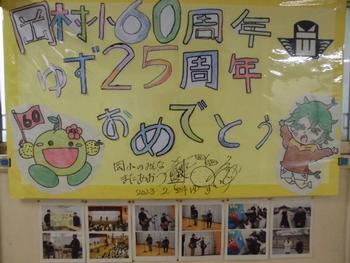 岡村小60周年
ゆず25周年
おめでとう
60
岡小のみんな
2023.2.